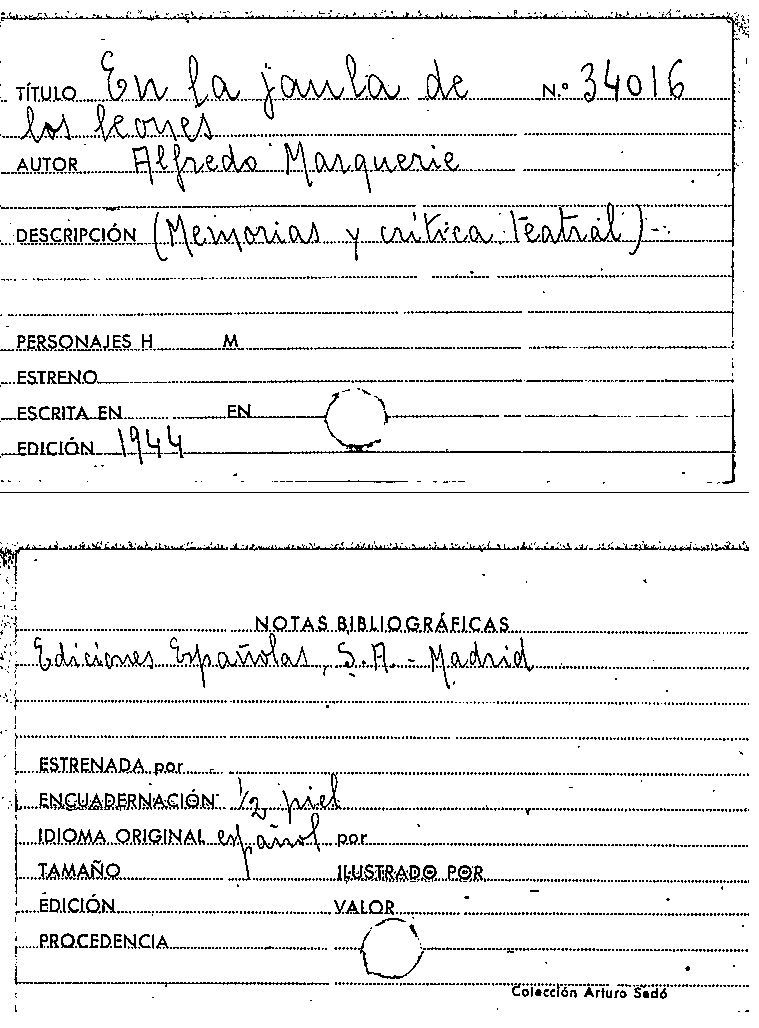 TÍTULO En la jaula de N.º 34016
los leones
AUTOR Alfredo Marquerie
DESCRIPCIÓN (Memorias y crítica teatral)-
PERSONAJES H M
ESTRENO
ESCRITA EN EN
EDICIÓN 1944
NOTAS BIBLIOGRÁFICAS
Ediciones Españolas, S.A.- Madrid
ESTRENADA por
ENCUADERNACIÓN 1/2 piel
IDIOMA ORIGINAL español por
TAMAÑO ILUSTRADO POR
EDICIÓN VALOR
PROCEDENCIA
Colección Arturo Sedó